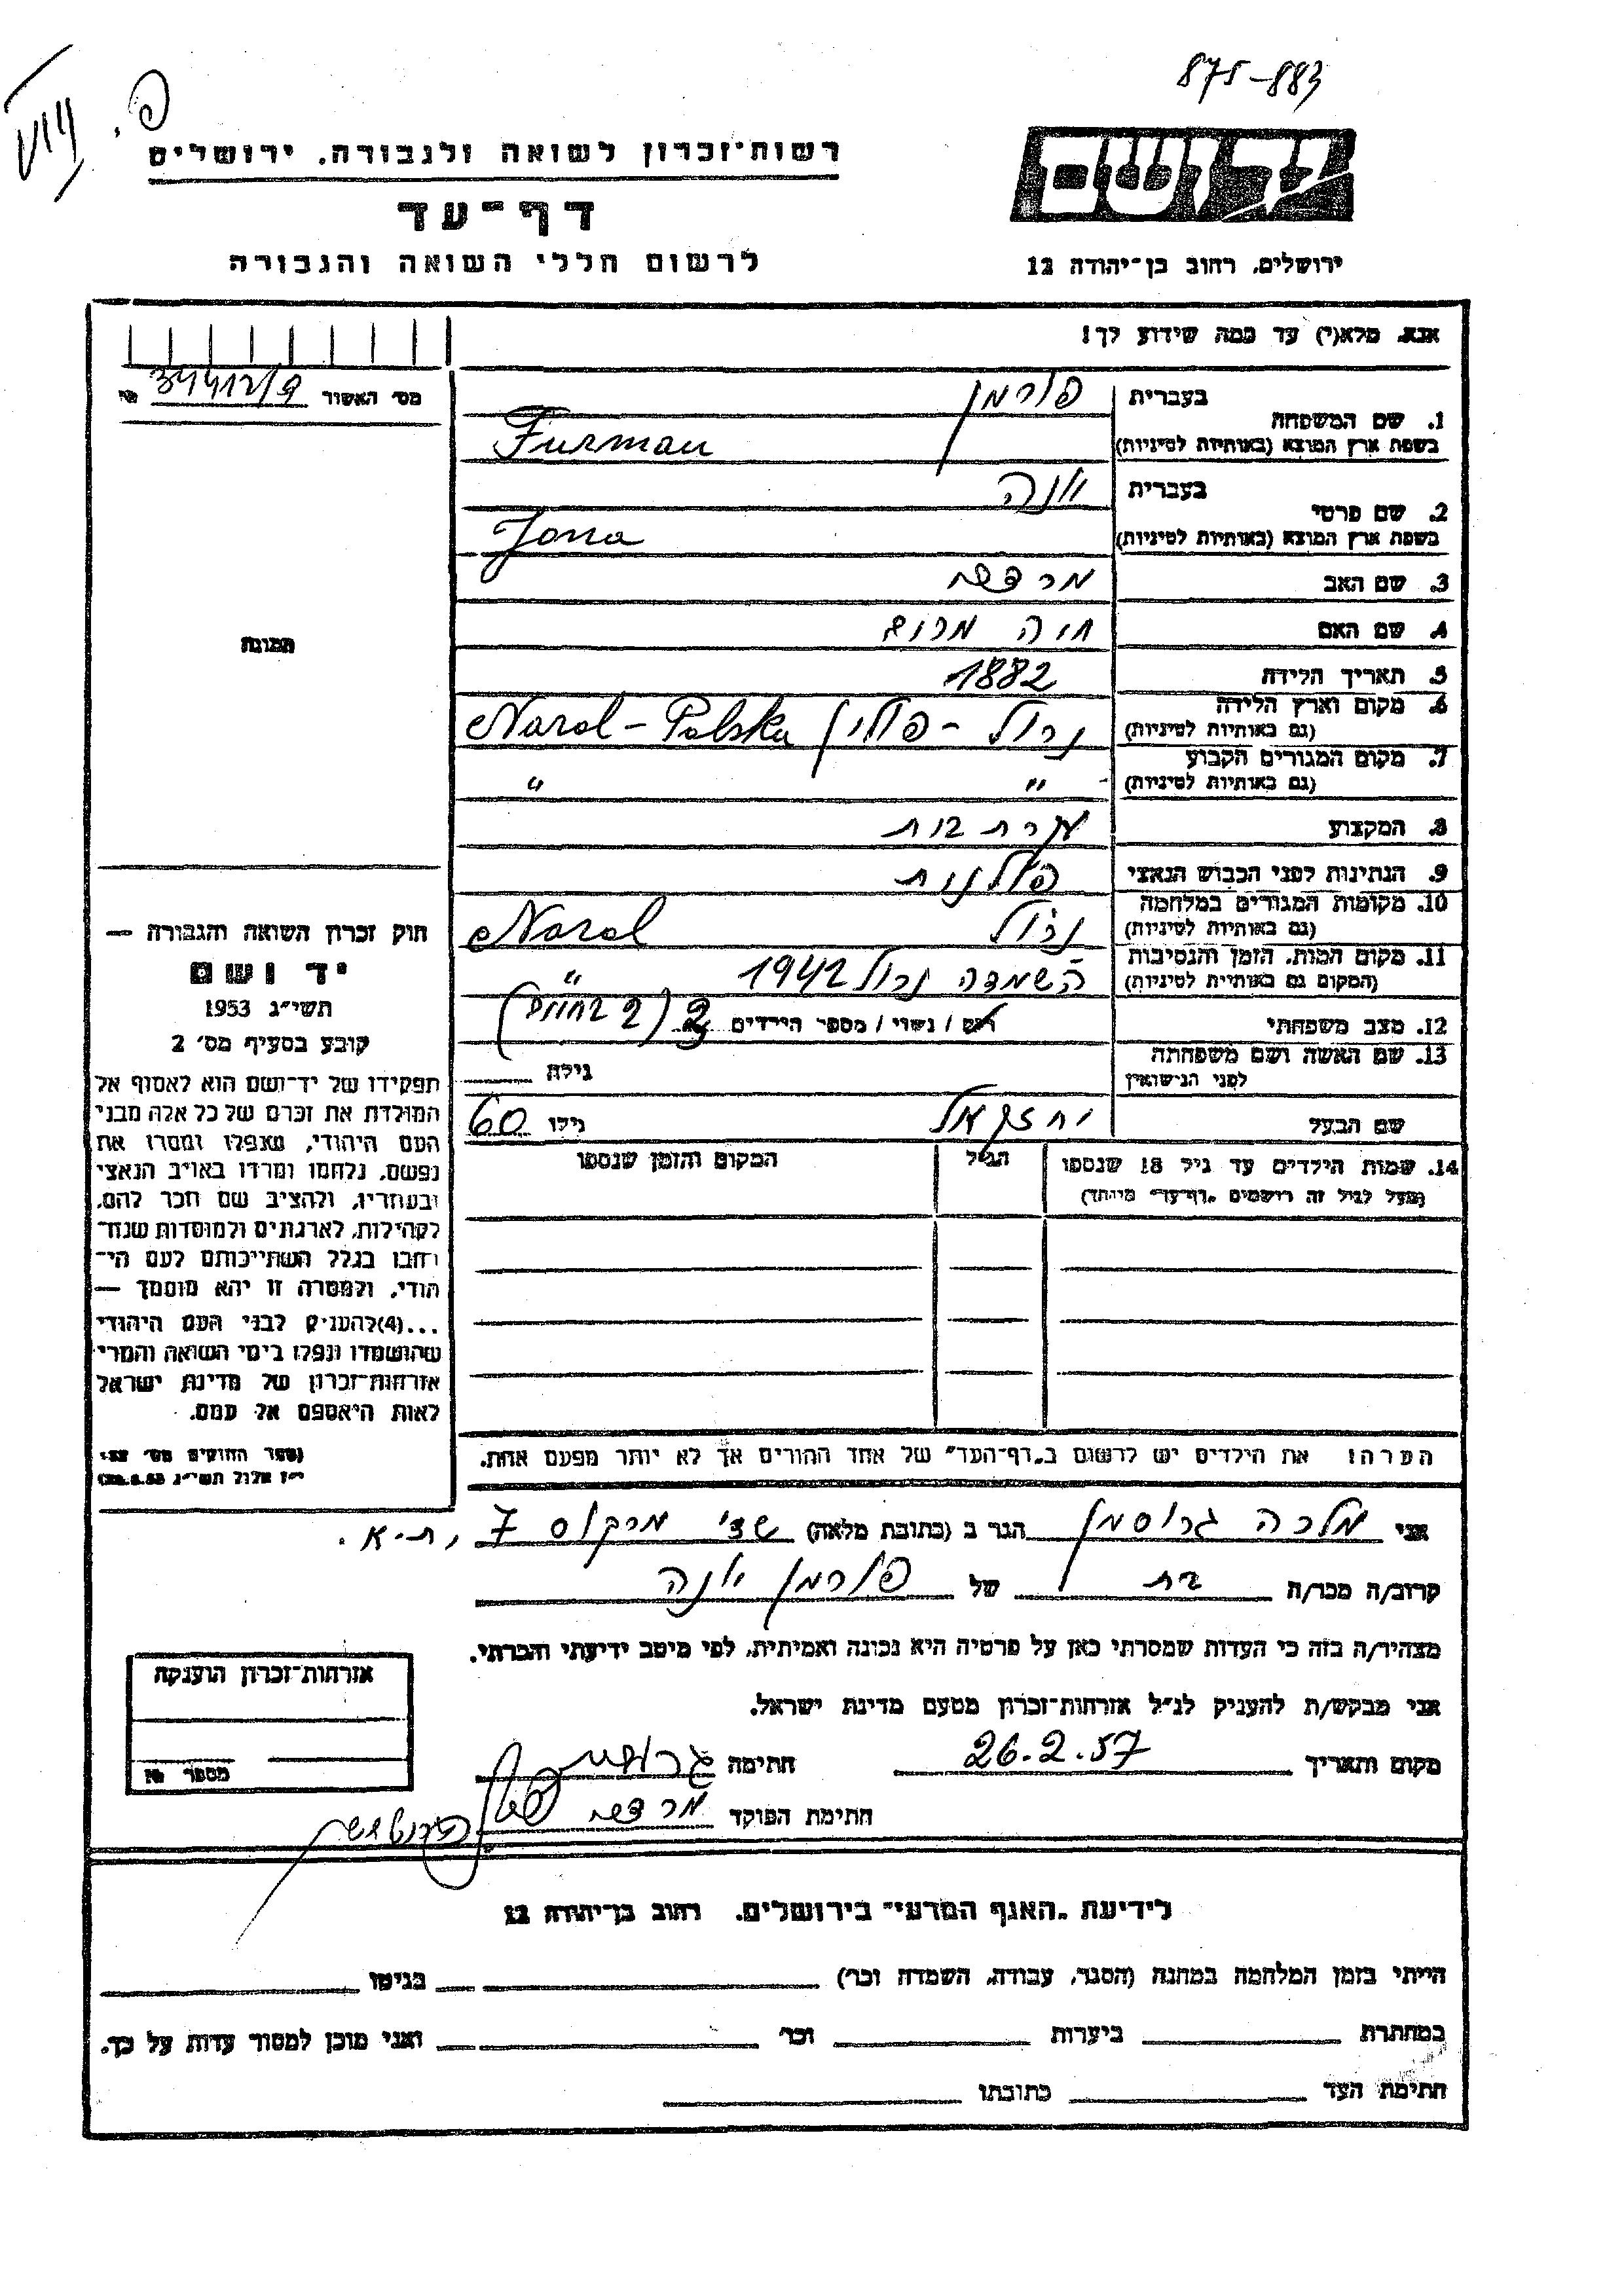 875-883
רשות־זכרון לשואה ולגבורה. ירושלים
דף־עד
לרשום חללי השואה והגבורה
יד ושם
ירושלים, רחוב בן־יהודה 12
אנא, מלא(י) עד כמה שידוע לך!
מס׳ האשור № 34412/9
1. שם המשפחה
בעברית פורמן
בשפת ארץ המוצא (באותיות לטיניות) Furman
2. שם פרטי
בעברית יונה
בשפת ארץ המוצא (באותיות לטיניות) Jona
3. שם האב מרדכי
4. שם האם חוה
5. תאריך הלידה 1882
6. מקום וארץ הלידה
(גם באותיות לטיניות) נרול - פולין Narol - Polska
7. מקום המגורים הקבוע
(גם באותיות לטיניות) " "
8. המקצוע עקרת בית
9. הנתינות לפני הכבוש הנאצי פולנית
10. מקומות המגורים במלחמה
(גם באותיות לטיניות) נרול Narol
11. מקום המות, הזמן והנסיבות
(המקום גם באותיות לטיניות) השמדה נרול 1942 "
12. מצב משפחתי רווק / נשוי / מספר הילדים 2
13. שם האשה ושם משפחתה
לפני הנישואין גילה
שם הבעל יחזקאל גילו 60
14. שמות הילדים עד גיל 18 שנספו
(מעל לגיל זה רושמים „דף־עד״ מיוחד)
הגיל
המקום והזמן שנספו
הערה: את הילדים יש לרשום ב„דף־העד״ של אחד ההורים אך לא יותר מפעם אחת.
תמונה
חוק זכרון השואה והגבורה —
יד ושם
תשי״ג 1953
קובע בסעיף מס׳ 2
תפקידו של יד־ושם הוא לאסוף אל
המולדת את זכרם של כל אלה מבני
העם היהודי, שנפלו ומסרו את
נפשם, נלחמו ומרדו באויב הנאצי
ובעוזריו, ולהציב שם וזכר להם,
לקהילות, לארגונים ולמוסדות שנח־
רבו בגלל השתייכותם לעם הי־
הודי, ולמטרה זו יהא מוסמך —
...(4) להעניק לבני העם היהודי
שהושמדו ונפלו בימי השואה והמרי
אזרחות־זכרון של מדינת ישראל
לאות היאספם אל עמם.
(ספר החוקים מס׳ 132,
י״ז אלול תשי״ג 28.8.53)
אני מלכה גרוסמן הגר ב (כתובת מלאה) מרקוס 7, ת-א.
קרוב/ה מכר/ה בת של פורמן יונה
מצהיר/ה בזה כי העדות שמסרתי כאן על פרטיה היא נכונה ואמיתית, לפי מיטב ידיעתי והכרתי.
אני מבקש/ת להעניק לנ״ל אזרחות־זכרון מטעם מדינת ישראל.
מקום ותאריך 26.2.57 חתימה
חתימת הפוקד מרדכי
אזרחות־זכרון הוענקה
מספר №
לידיעת „האגף המדעי״ בירושלים. רחוב בן־יהודה 12
הייתי בזמן המלחמה במחנה (הסגר, עבודה, השמדה וכו׳) בגיטו
במחתרת ביערות וכו׳ ואני מוכן למסור עדות על כך.
חתימת העד כתובתו